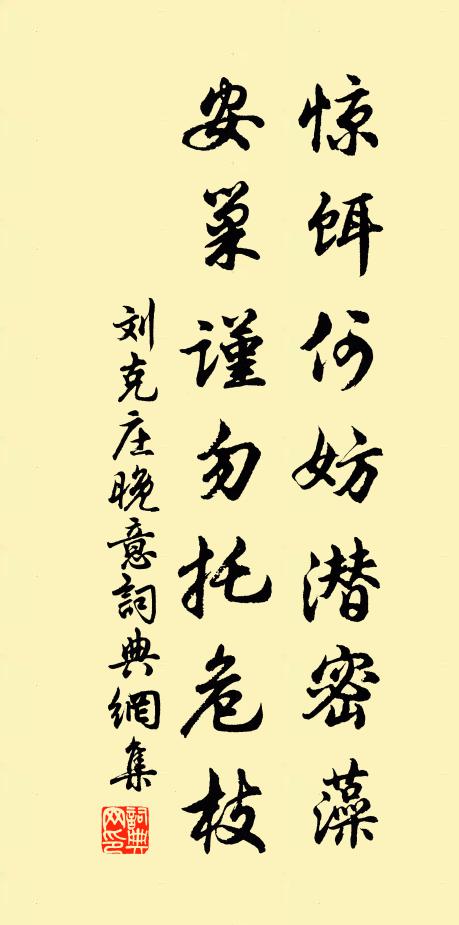 惊饵何妨潜密藻
安巢谨勿托危枝
刘克庄晚意詞典網集
詞典网印